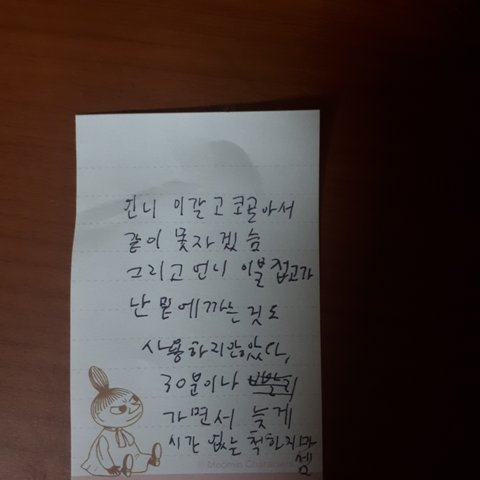 언니 이갈고 코골아서
같이 못자겠슴
그리고 언니 이불 접고가
난 밑에까는 것도
사용하지 않았다,
30분이나 빨리
가면서 늦게
시간 없는 척 하지마
셈
© Moomin Characters